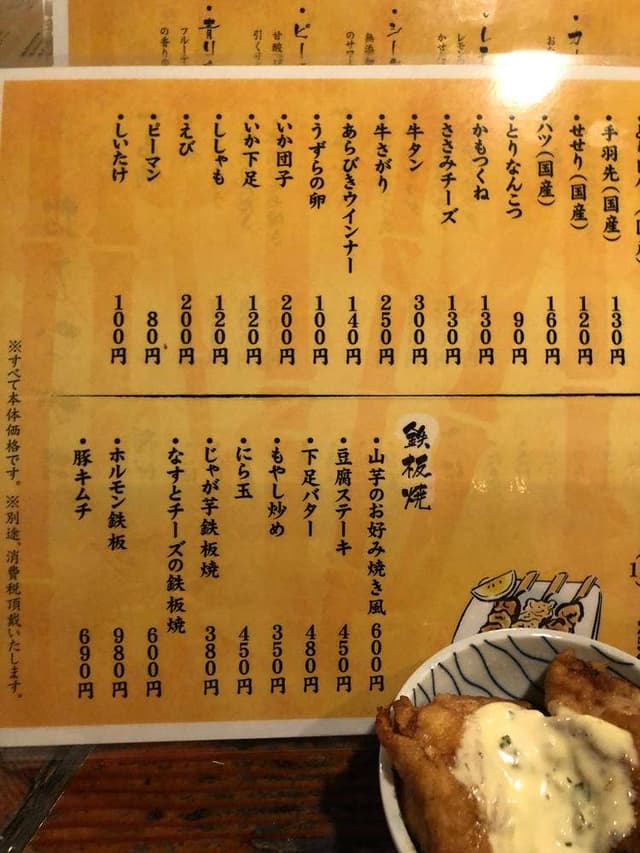 ・手羽先（国産） 130円
・せせり（国産） 120円
・ハツ（国産） 160円
・とりなんこつ 90円
・かもつくね 130円
・ささみチーズ 130円
・牛タン 300円
・牛さがり 250円
・あらびきウインナー 140円
・うずらの卵 100円
・いか団子 200円
・いか下足 120円
・ししゃも 120円
・えび 200円
・ピーマン 80円
・しいたけ 100円
鉄板焼
・山芋のお好み焼き風 600円
・豆腐ステーキ 450円
・下足バター 480円
・もやし炒め 350円
・にら玉 450円
・じゃが芋鉄板焼 380円
・なすとチーズの鉄板焼 600円
・ホルモン鉄板 980円
・豚キムチ 690円
※すべて本体価格です。※別途、消費税頂戴いたします。